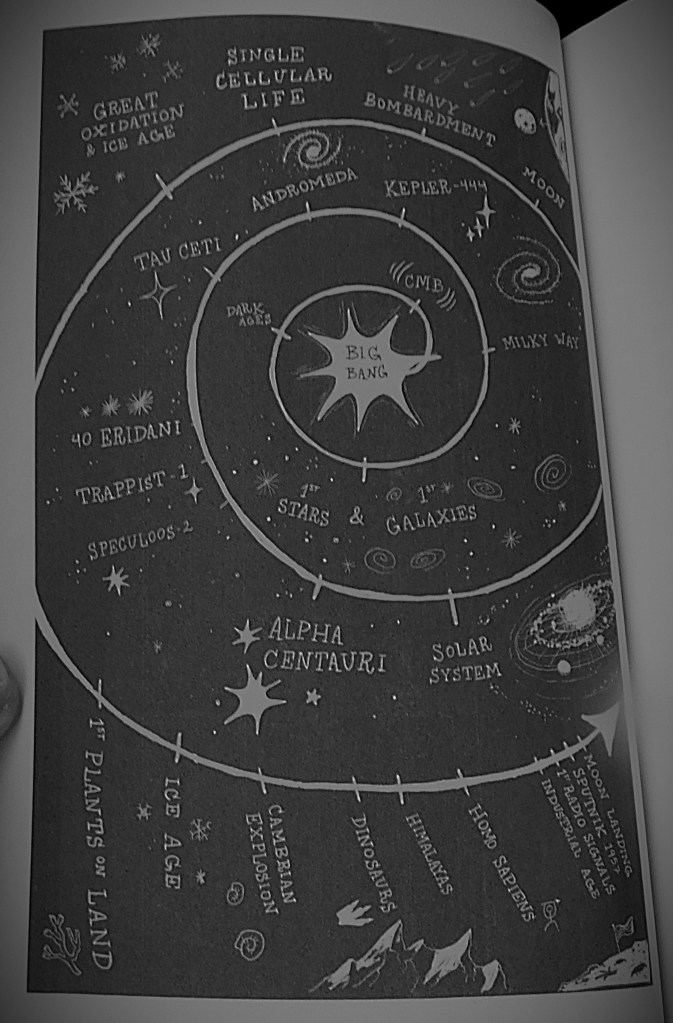 SINGLE
CELLULAR
LIFE
GREAT
OXIDATION
& ICE AGE
HEAVY
BOMBARDMENT
MOON
ANDROMEDA
KEPLER-444
TAU CETI
DARK
AGES
CMB
BIG
BANG
MILKY WAY
40 ERIDANI
TRAPPIST-1
SPECULOOS-2
1ST
STARS
&
1ST
GALAXIES
ALPHA
CENTAURI
SOLAR
SYSTEM
1ST PLANTS ON LAND
ICE AGE
CAMBRIAN
EXPLOSION
DINOSAURS
HIMALAYAS
HOMO SAPIENS
INDUSTRIAL AGE
1ST RADIO SIGNALS
SPUTNIK 1957
MOON LANDING